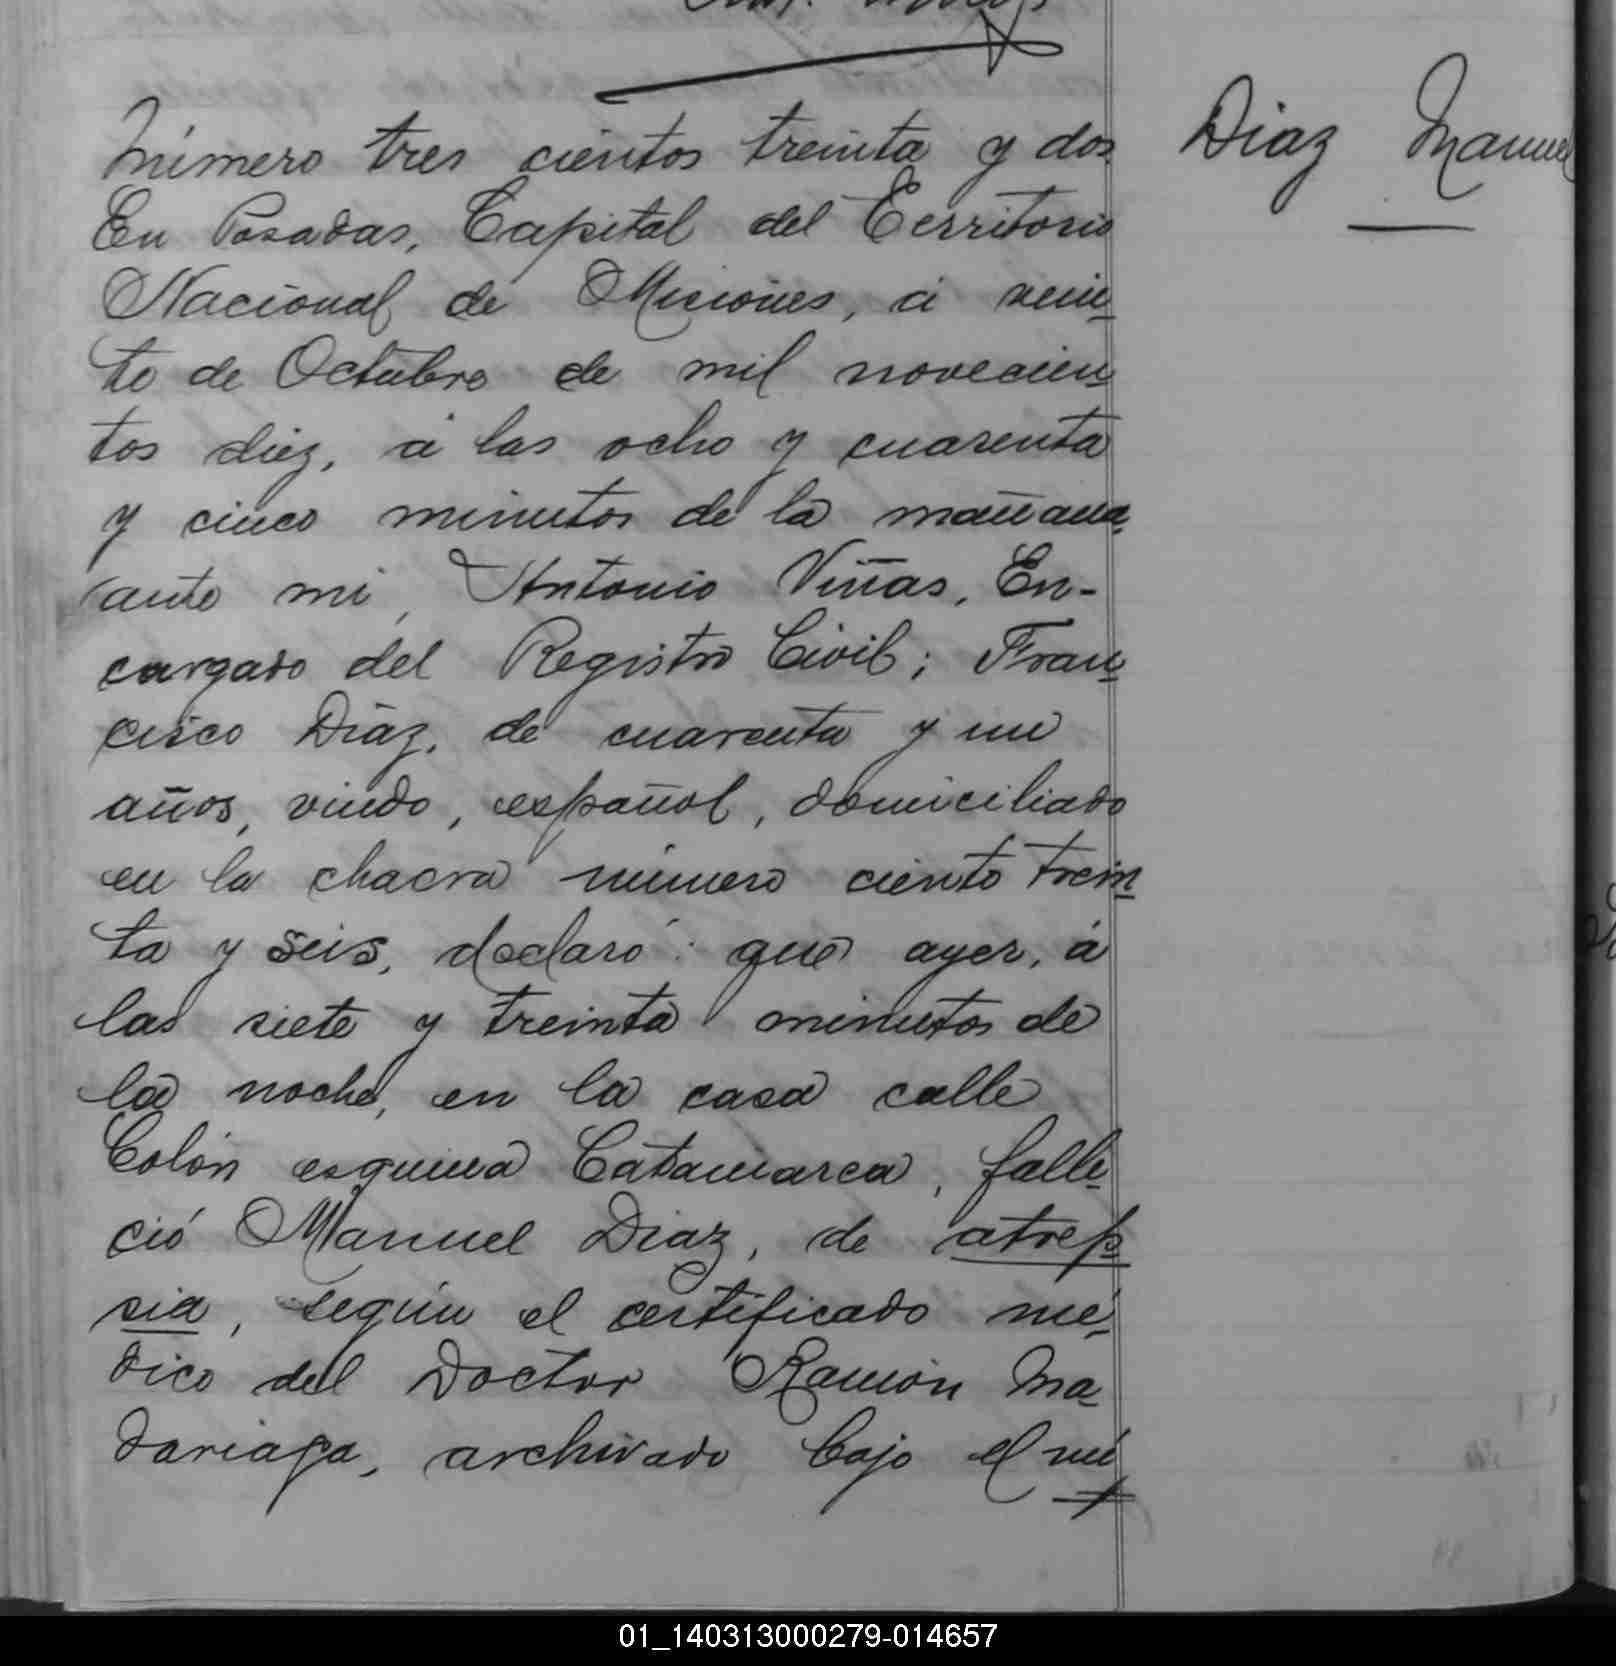 Número tres cientos treinta y dos
Diaz Manuel
En Posadas, Capital del Territorio
Nacional de Misiones, á vein
te de Octubre de mil novecien
tos diez, á las ocho y cuarenta
y cinco minutos de la mañana,
ante mi, Antonio Viñas, En-
cargado del Registro Civil; Fran
cisco Diaz, de cuarenta y un
años, viudo, español, domiciliado
en la chacra número ciento trein
ta y seis, declaró: que ayer, á
las siete y treinta minutos de
la noche, en la casa calle
Colón esquina Catamarca, falle
ció Manuel Diaz, de atrep
sia, según el certificado mé
dico del Doctor Ramón Ma
dariaga, archivado bajo el nú
01_140313000279-014657